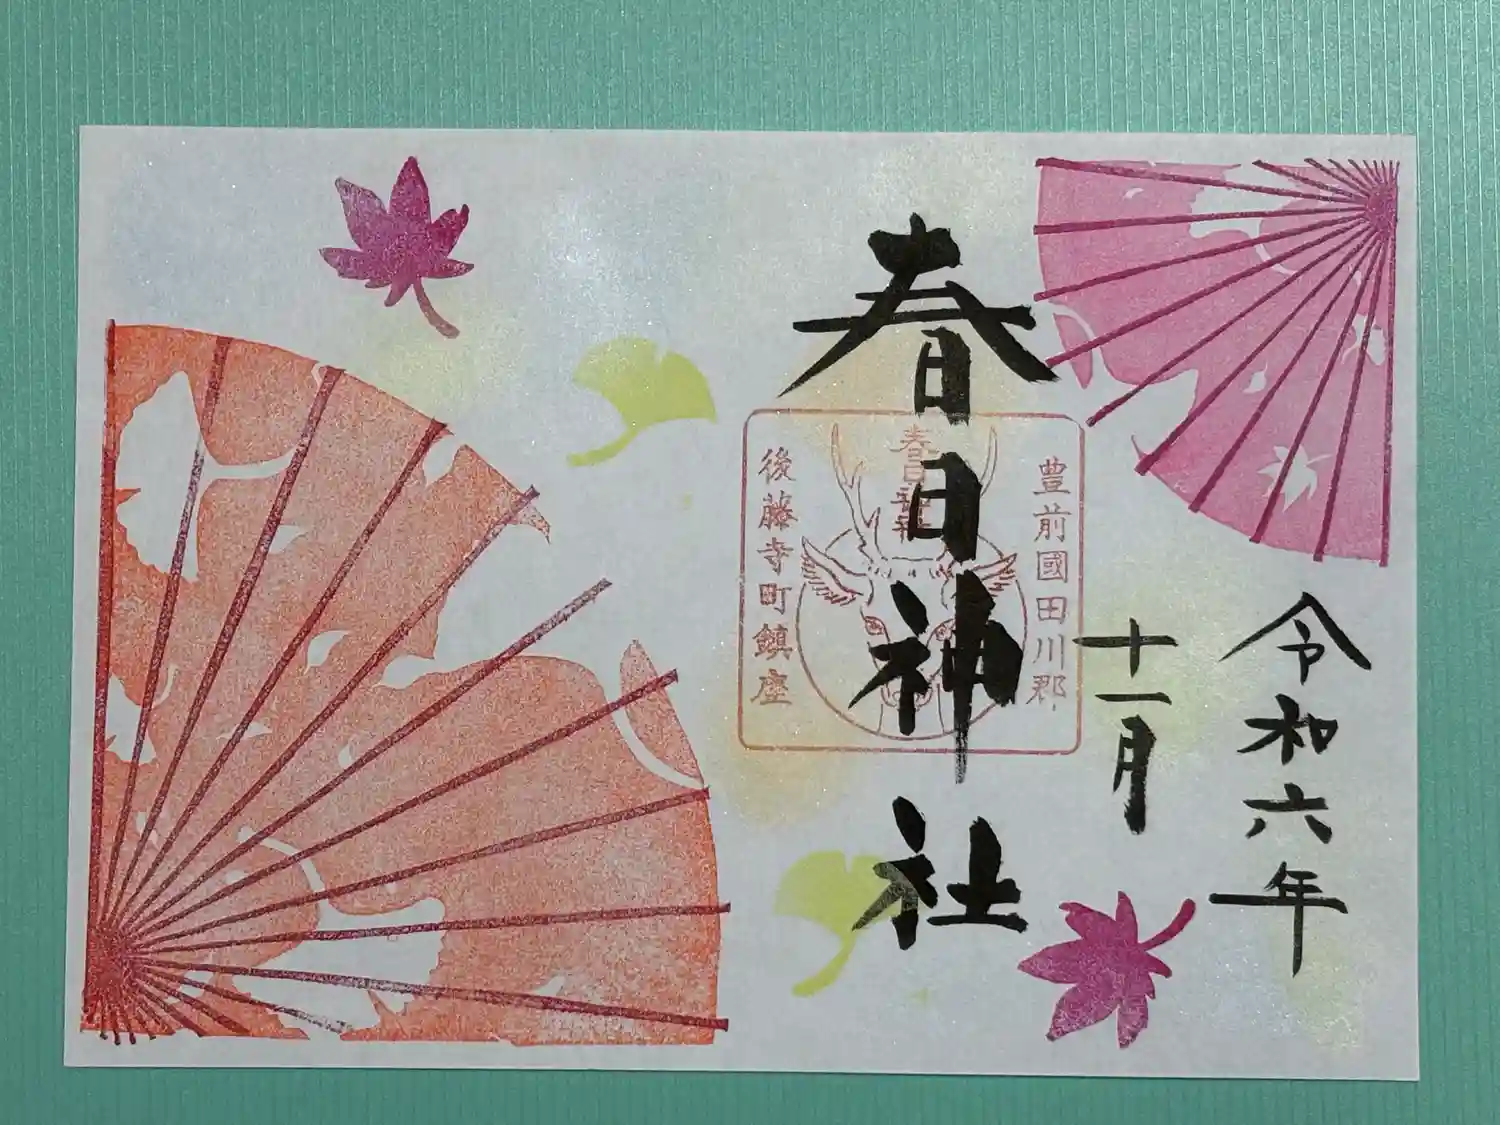 令和六年
十一月
春日神社
豊前國田川郡
春日神社
後藤寺町鎮座